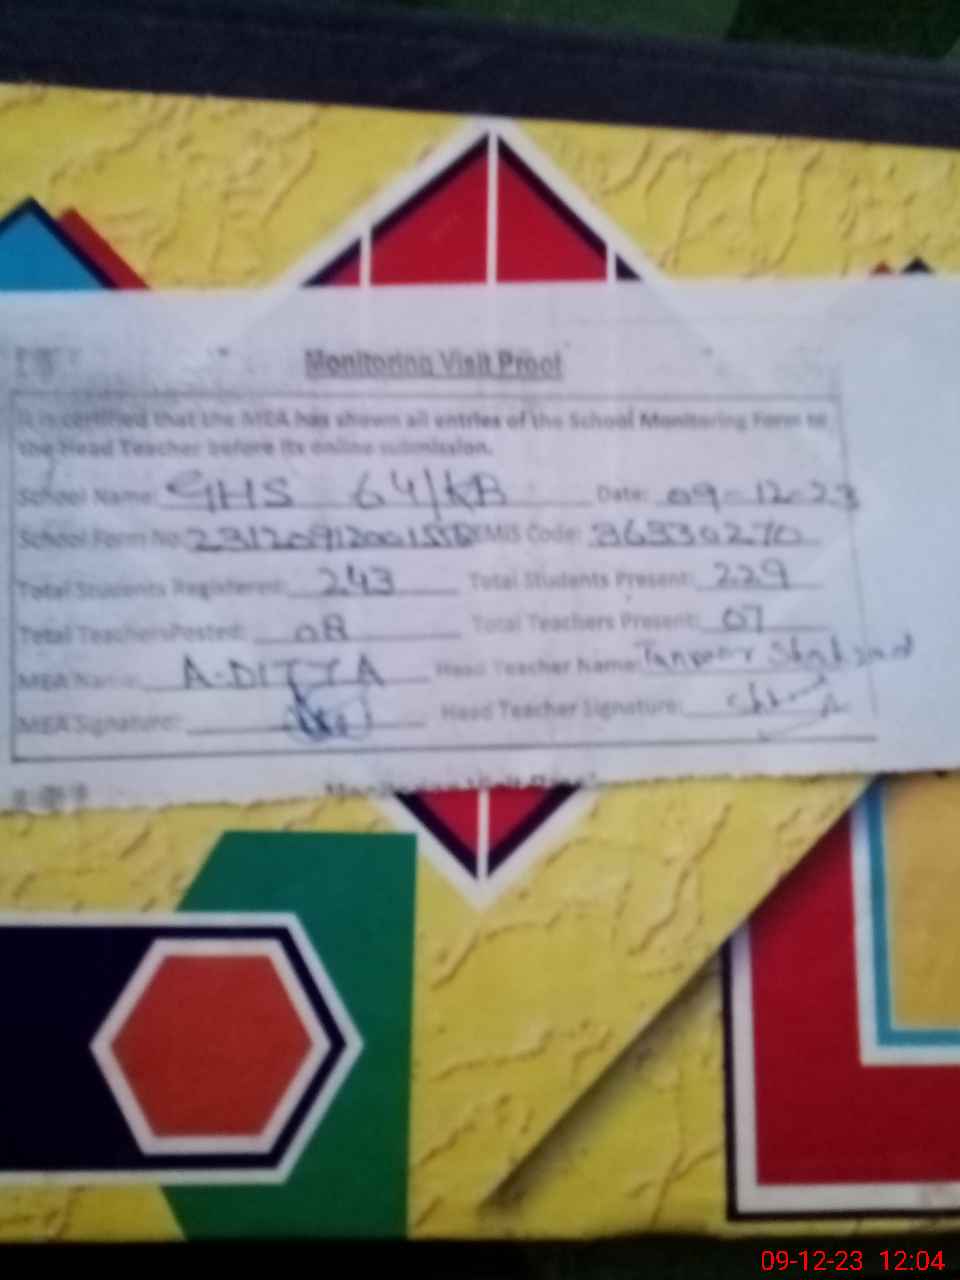 Monitoring Visit Proof
It is certified that the MEA has shown all entries of the School Monitoring Form to
the Head Teacher before its online submission.
School Name: GHS 64/KB Date: 09-12-23
School Form No: EMIS Code: 36330270
Total Students Registered: 243 Total Students Present: 229
Total Teachers Posted: 08 Total Teachers Present: 07
MEA Name: A-DITTA Head Teacher Name:
MEA Signature: Head Teacher Signature:
Monitoring Visit Proof
09-12-23 12:04